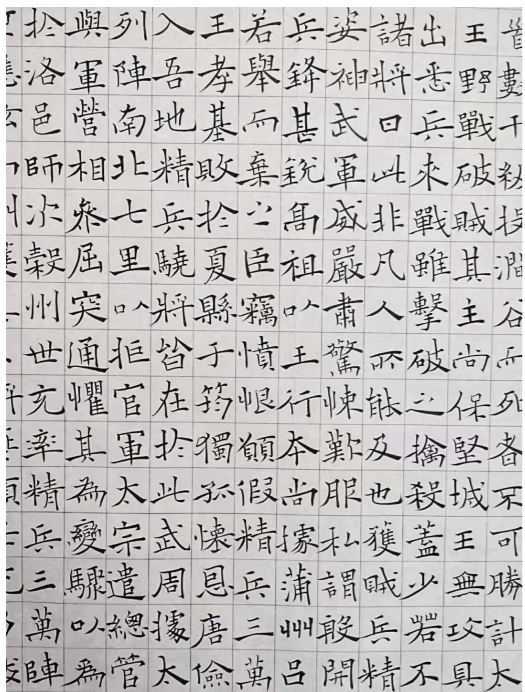 首數千級投澗谷而死者不可勝計太
王野戰破賊其主尚保堅城王無攻具
出悉兵來戰雖擊破之擒殺蓋少若不
諸將曰此非凡人所能及也獲賊兵精
姿神武軍威嚴肅驚悚歎服私謂殷開
兵鋒甚銳高祖以王行本尚據蒲州呂
若舉而棄之臣竊憤恨願假精兵三萬
王孝基敗於夏縣于筠獨孤懷恩唐儉
入吾地精兵驍將皆在於此武周據太
列陣南北七里以拒官軍太宗遣總管
與軍營相參屈突通懼其為變驟以為
於洛邑師次穀州世充率精兵三萬陣